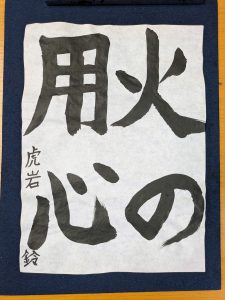 火の
用心
虎岩鈴